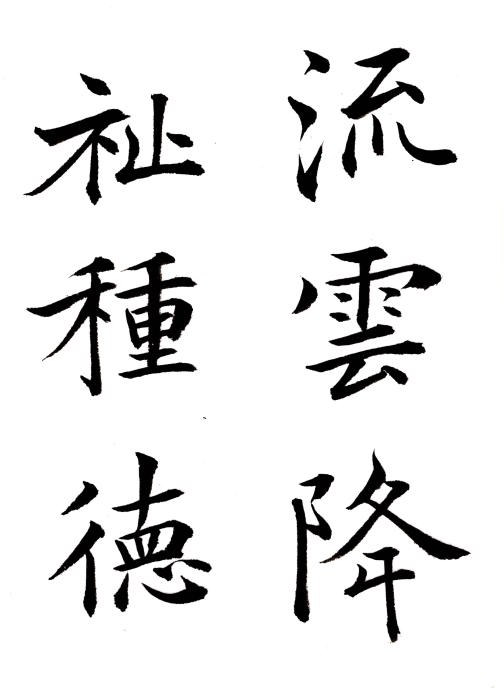 流雲降
祉種徳